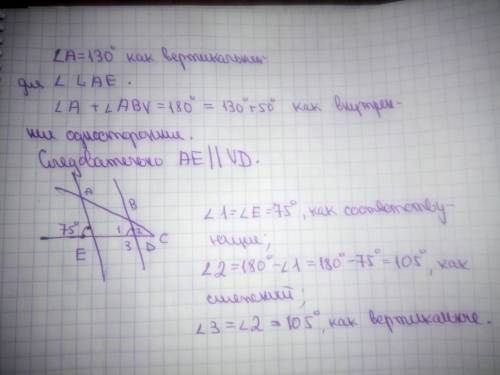 ∠A=130° как вертикальный
для ∠ LAE.
∠A + ∠ABV=180° = 130°+50° как внутрен-
ние односторонние.
Следовательно AE || VD.
A
B
75°
1
2
C
3
D
E
∠1=∠E=75°, как соответству-
ющие;
∠2=180°-∠1=180°-75°=105°, как
смежный;
∠3=∠2=105°, как вертикальные.